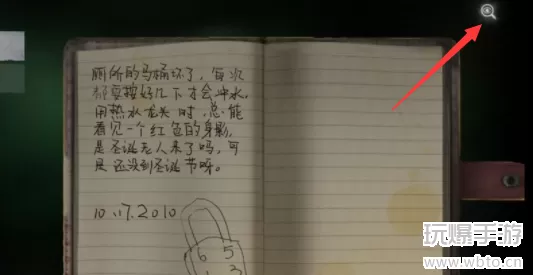 厕所的马桶坏了，每次
都要按好几下才会冲水。
用热水龙头时，总能
看见一个红色的身影，
是圣诞老人来了吗，可
是还没到圣诞节呀。
10.17.2010
6 5
3
玩爆手游
www.wbto.cn